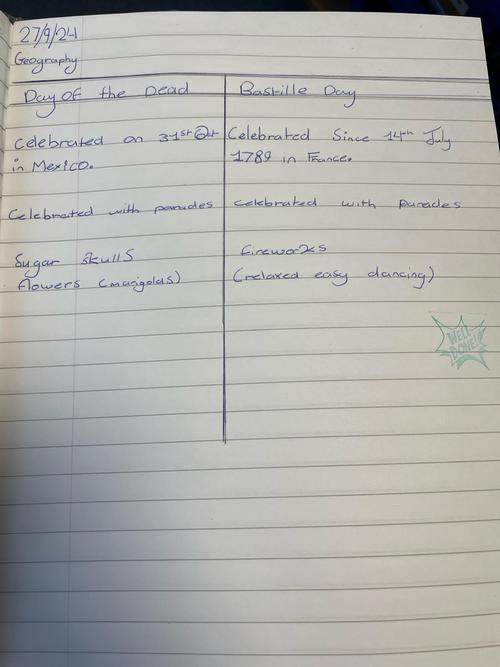 27/9/24
Geography
Day Of the Dead
Celebrated on 31st Oct
in Mexico.
Celebrated with parades
Sugar skulls
flowers (marigolds)
Bastille Day
Celebrated Since 14th July
1789 in France.
Celebrated with Parades
fireworks
(relaxed easy dancing)
WELL
DONE!